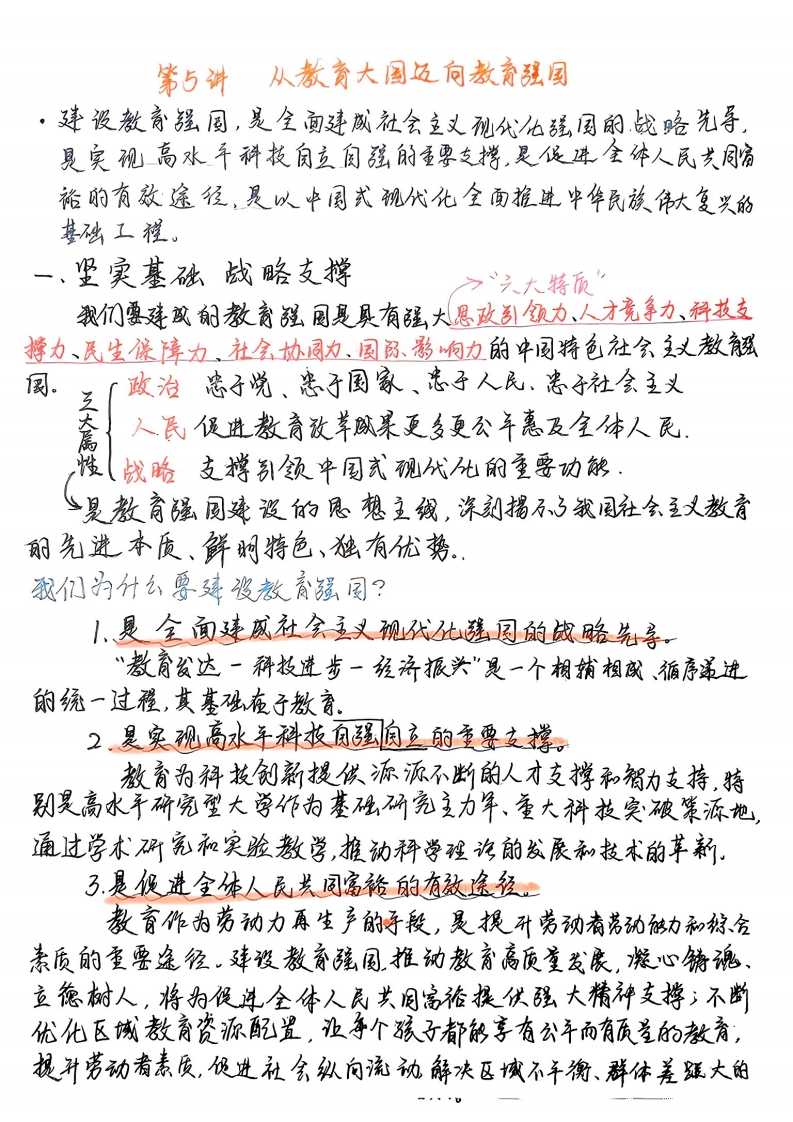 第5讲 从教育大国迈向教育强国
·建设教育强国,是全面建成社会主义现代化强国的战略先导,
是实现高水平科技自立自强的重要支撑,是促进全体人民共同富
裕的有效途径,是以中国式现代化全面推进中华民族伟大复兴的
基础工程。
一、坚实基础 战略支撑
"六大特质"
我们要建成的教育强国是具有强大思政引领力、人才竞争力、科技支
撑力、民生保障力、社会协同力、国际影响力的中国特色社会主义教育强
国。
三大属性
政治 忠于党、忠于国家、忠于人民、忠于社会主义
人民 促进教育改革成果更多更公平惠及全体人民.
战略 支撑引领中国式现代化的重要功能.
是教育强国建设的思想主线,深刻揭示了我国社会主义教育
的先进本质、鲜明特色、独有优势。
我们为什么要建设教育强国?
1.是全面建成社会主义现代化强国的战略先导。
"教育发达-科技进步-经济振兴"是一个相辅相成、循序递进
的统一过程,其基础在于教育。
2.是实现高水平科技自强自立的重要支撑。
教育为科技创新提供源源不断的人才支撑和智力支持,特
别是高水平研究型大学作为基础研究主力军、重大科技突破策源地,
通过学术研究和实验教学,推动科学理论的发展和技术的革新。
3.是促进全体人民共同富裕的有效途径。
教育作为劳动力再生产的手段,是提升劳动者劳动能力和综合
素质的重要途径。建设教育强国,推动教育高质量发展,凝心铸魂、
立德树人,将为促进全体人民共同富裕提供强大精神支撑;不断
优化区域教育资源配置,让每个孩子都能享有公平而有质量的教育,
提升劳动者素质,促进社会纵向流动,解决区域不平衡、群体差距大的